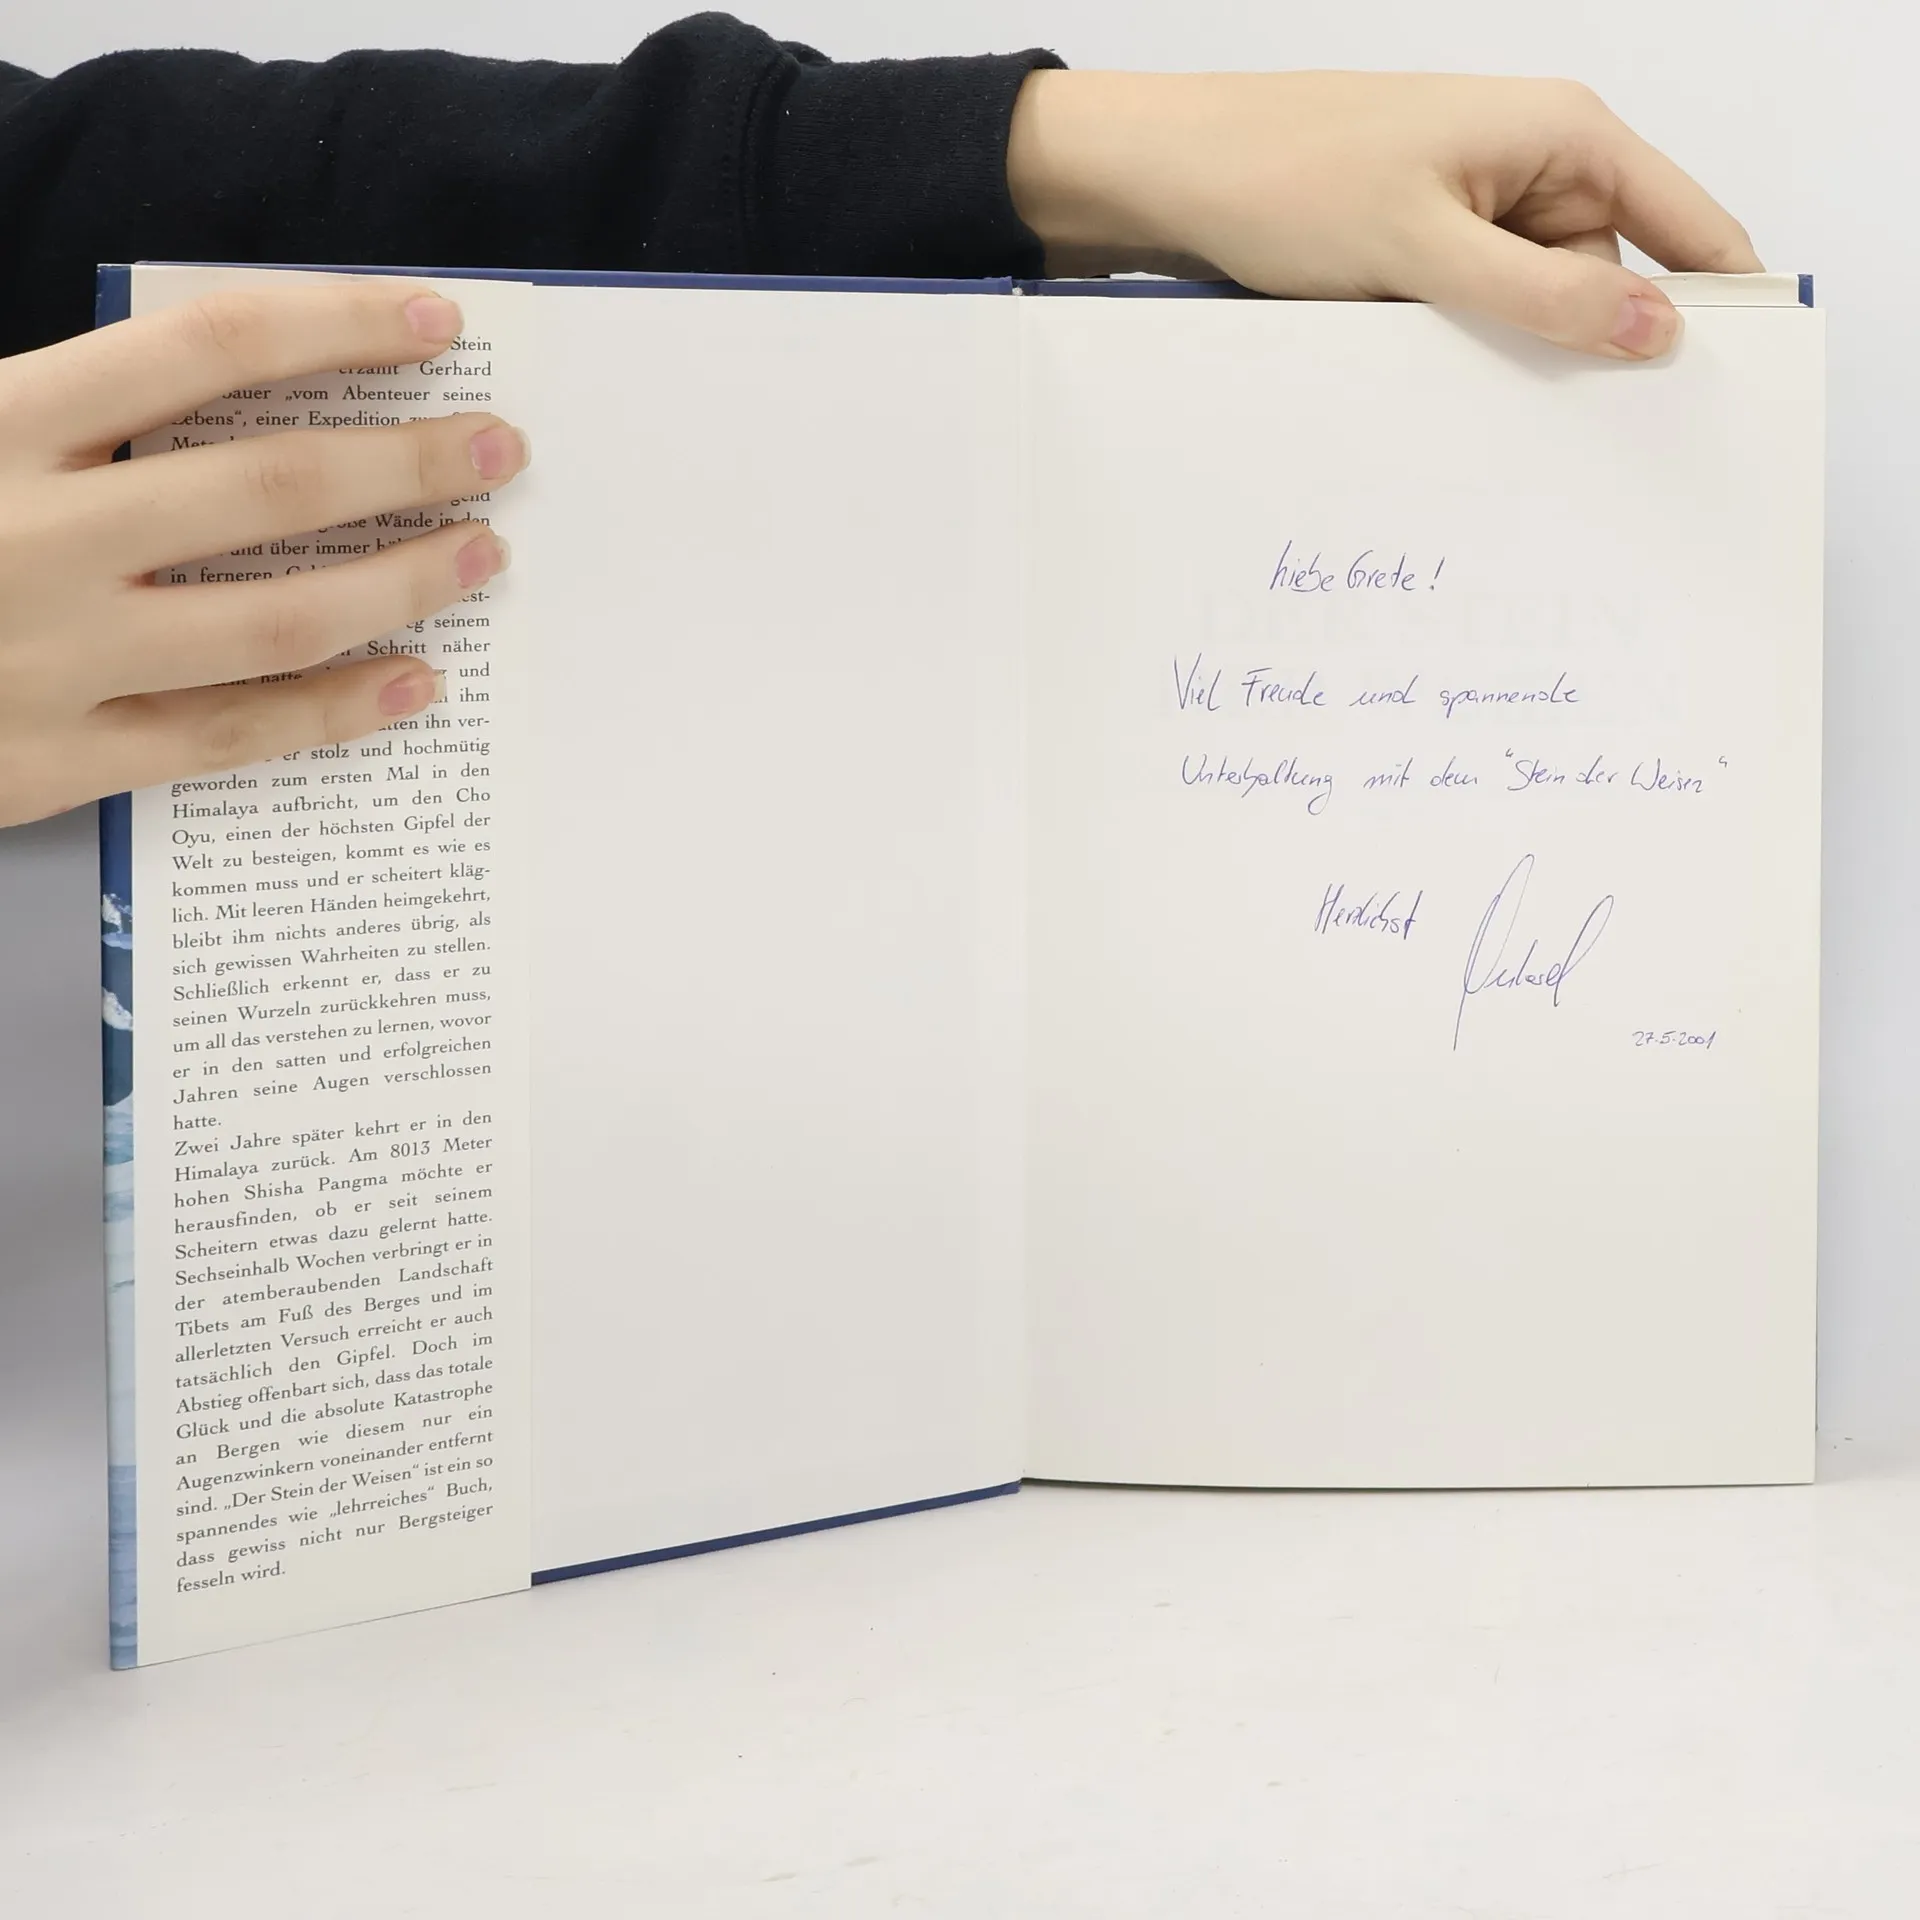 Stein
erzählt Gerhard
„vom Abenteuer seines
Lebens“, einer Expedition
Wände in den
und über immer
in ferneren
seinem
Schritt näher
hatte
und
ihm
ihn ver-
er stolz und hochmütig
geworden zum ersten Mal in den
Himalaya aufbricht, um den Cho
Oyu, einen der höchsten Gipfel der
Welt zu besteigen, kommt es wie es
kommen muss und er scheitert kläg-
lich. Mit leeren Händen heimgekehrt,
bleibt ihm nichts anderes übrig, als
sich gewissen Wahrheiten zu stellen.
Schließlich erkennt er, dass er zu
seinen Wurzeln zurückkehren muss,
um all das verstehen zu lernen, wovor
er in den satten und erfolgreichen
Jahren seine Augen verschlossen
hatte.
Zwei Jahre später kehrt er in den
Himalaya zurück. Am 8013 Meter
hohen Shisha Pangma möchte er
herausfinden, ob er seit seinem
Scheitern etwas dazu gelernt hatte.
Sechseinhalb Wochen verbringt er in
der atemberaubenden Landschaft
Tibets am Fuß des Berges und im
allerletzten Versuch erreicht er auch
tatsächlich den Gipfel. Doch im
Abstieg offenbart sich, dass das totale
Glück und die absolute Katastrophe
an Bergen wie diesem nur ein
Augenzwinkern voneinander entfernt
sind. „Der Stein der Weisen“ ist ein so
spannendes wie „lehrreiches“ Buch,
dass gewiss nicht nur Bergsteiger
fesseln wird.
Liebe Grete!
Viel Freude und spannende
Unterhaltung mit dem "Stein der Weisen"
Herzlichst
27.5.2001